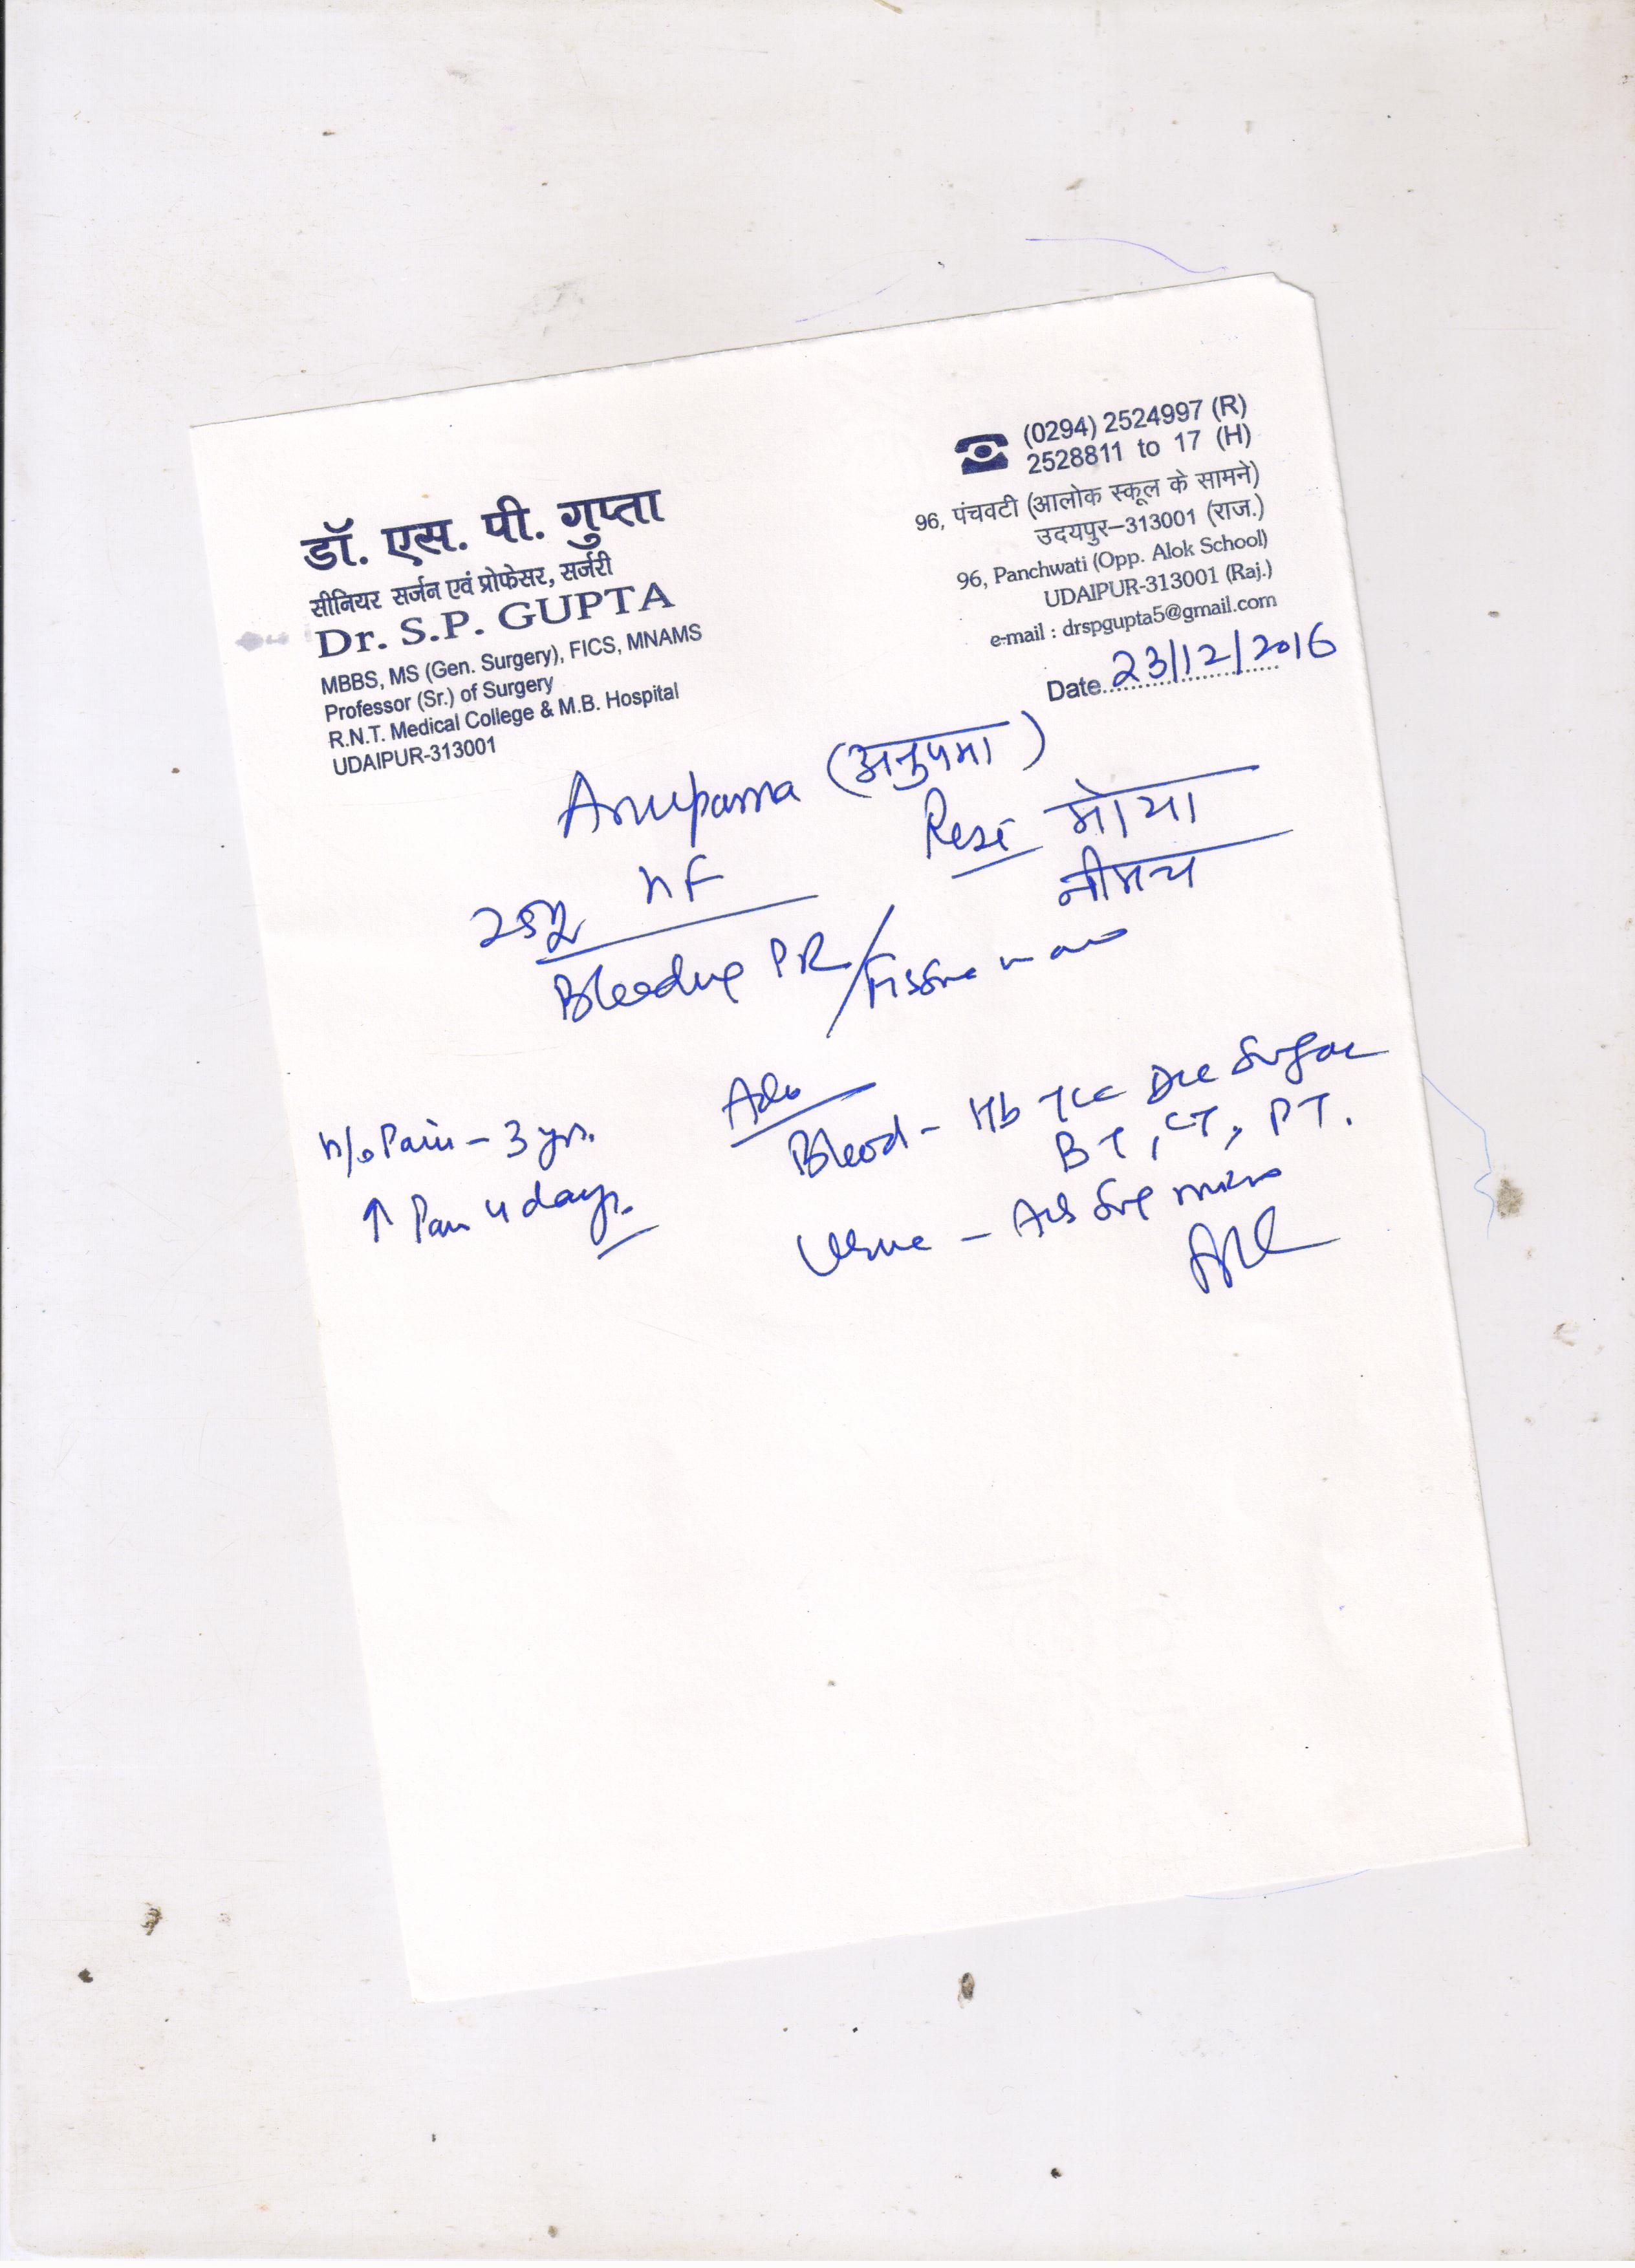 डॉ. एस. पी. गुप्ता
सीनियर सर्जन एवं प्रोफेसर, सर्जरी
Dr. S.P. GUPTA
MBBS, MS (Gen. Surgery), FICS, MNAMS
Professor (Sr.) of Surgery
R.N.T. Medical College & M.B. Hospital
UDAIPUR-313001
(0294) 2524997 (R)
2528811 to 17 (H)
96, पंचवटी (आलोक स्कूल के सामने)
उदयपुर–313001 (राज.)
96, Panchwati (Opp. Alok School)
UDAIPUR-313001 (Raj.)
e-mail : drspgupta5@gmail.com
Date 23/12/2016
Anupama (अनुपमा)
Resi मोया
नीमच
HF
Bleeding PR/Fissure in ano
h/o Pain - 3 yrs.
↑ Pain 4 days.
Adv
Blood - Hb TLC DLC Sugar
BT, CT, PT.
Urine - Alb Sug micro